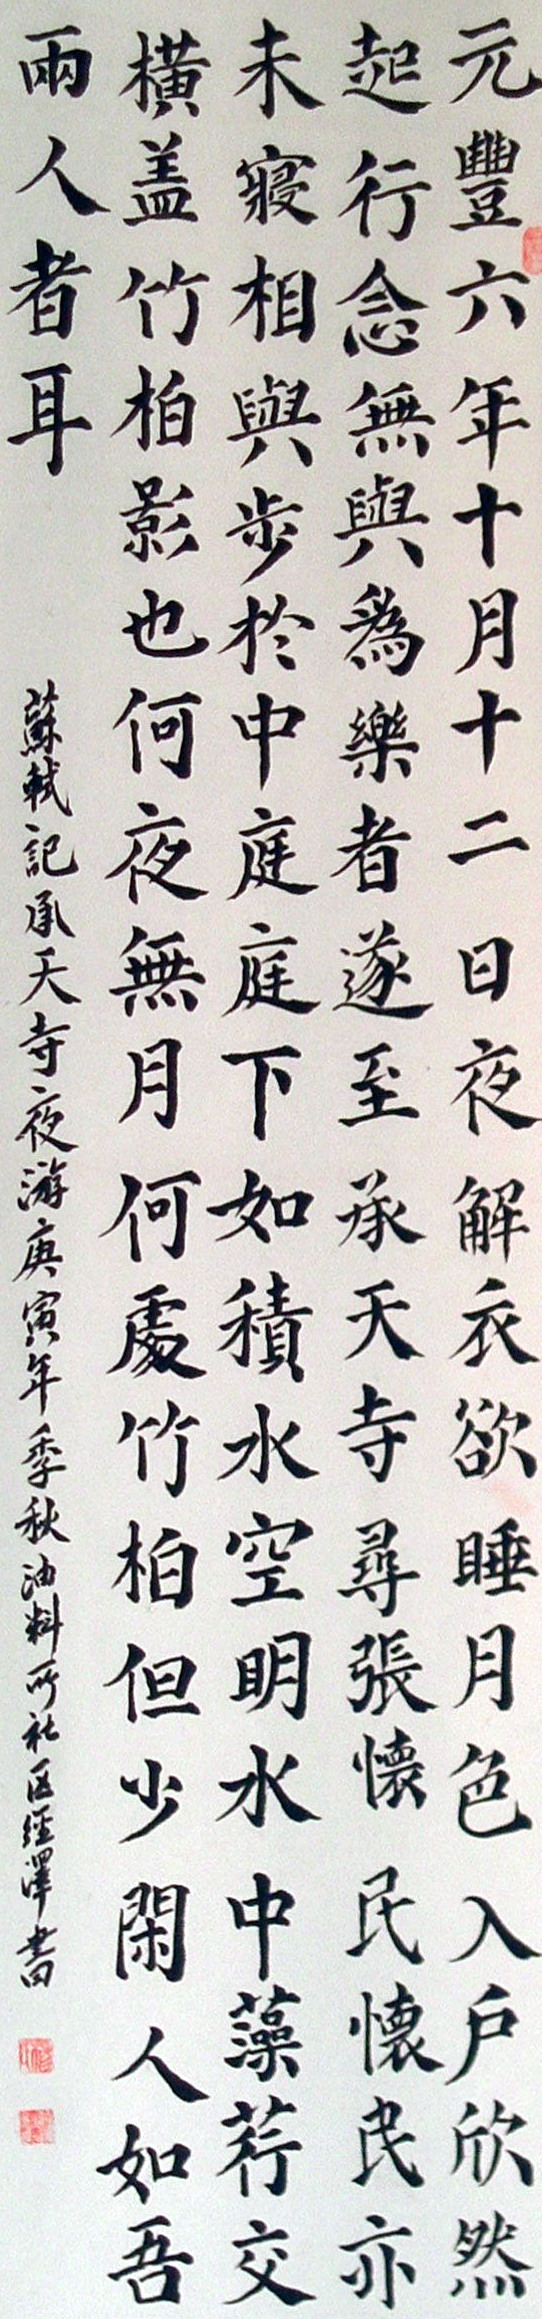 元豐六年十月十二日夜解衣欲睡月色入戶欣然
起行念無與為樂者遂至承天寺尋張懷民懷民亦
未寢相與步於中庭庭下如積水空明水中藻荇交
橫盖竹柏影也何夜無月何處竹柏但少閑人如吾
兩人者耳
蘇軾記承天寺夜游庚寅年季秋油料所社區經澤書